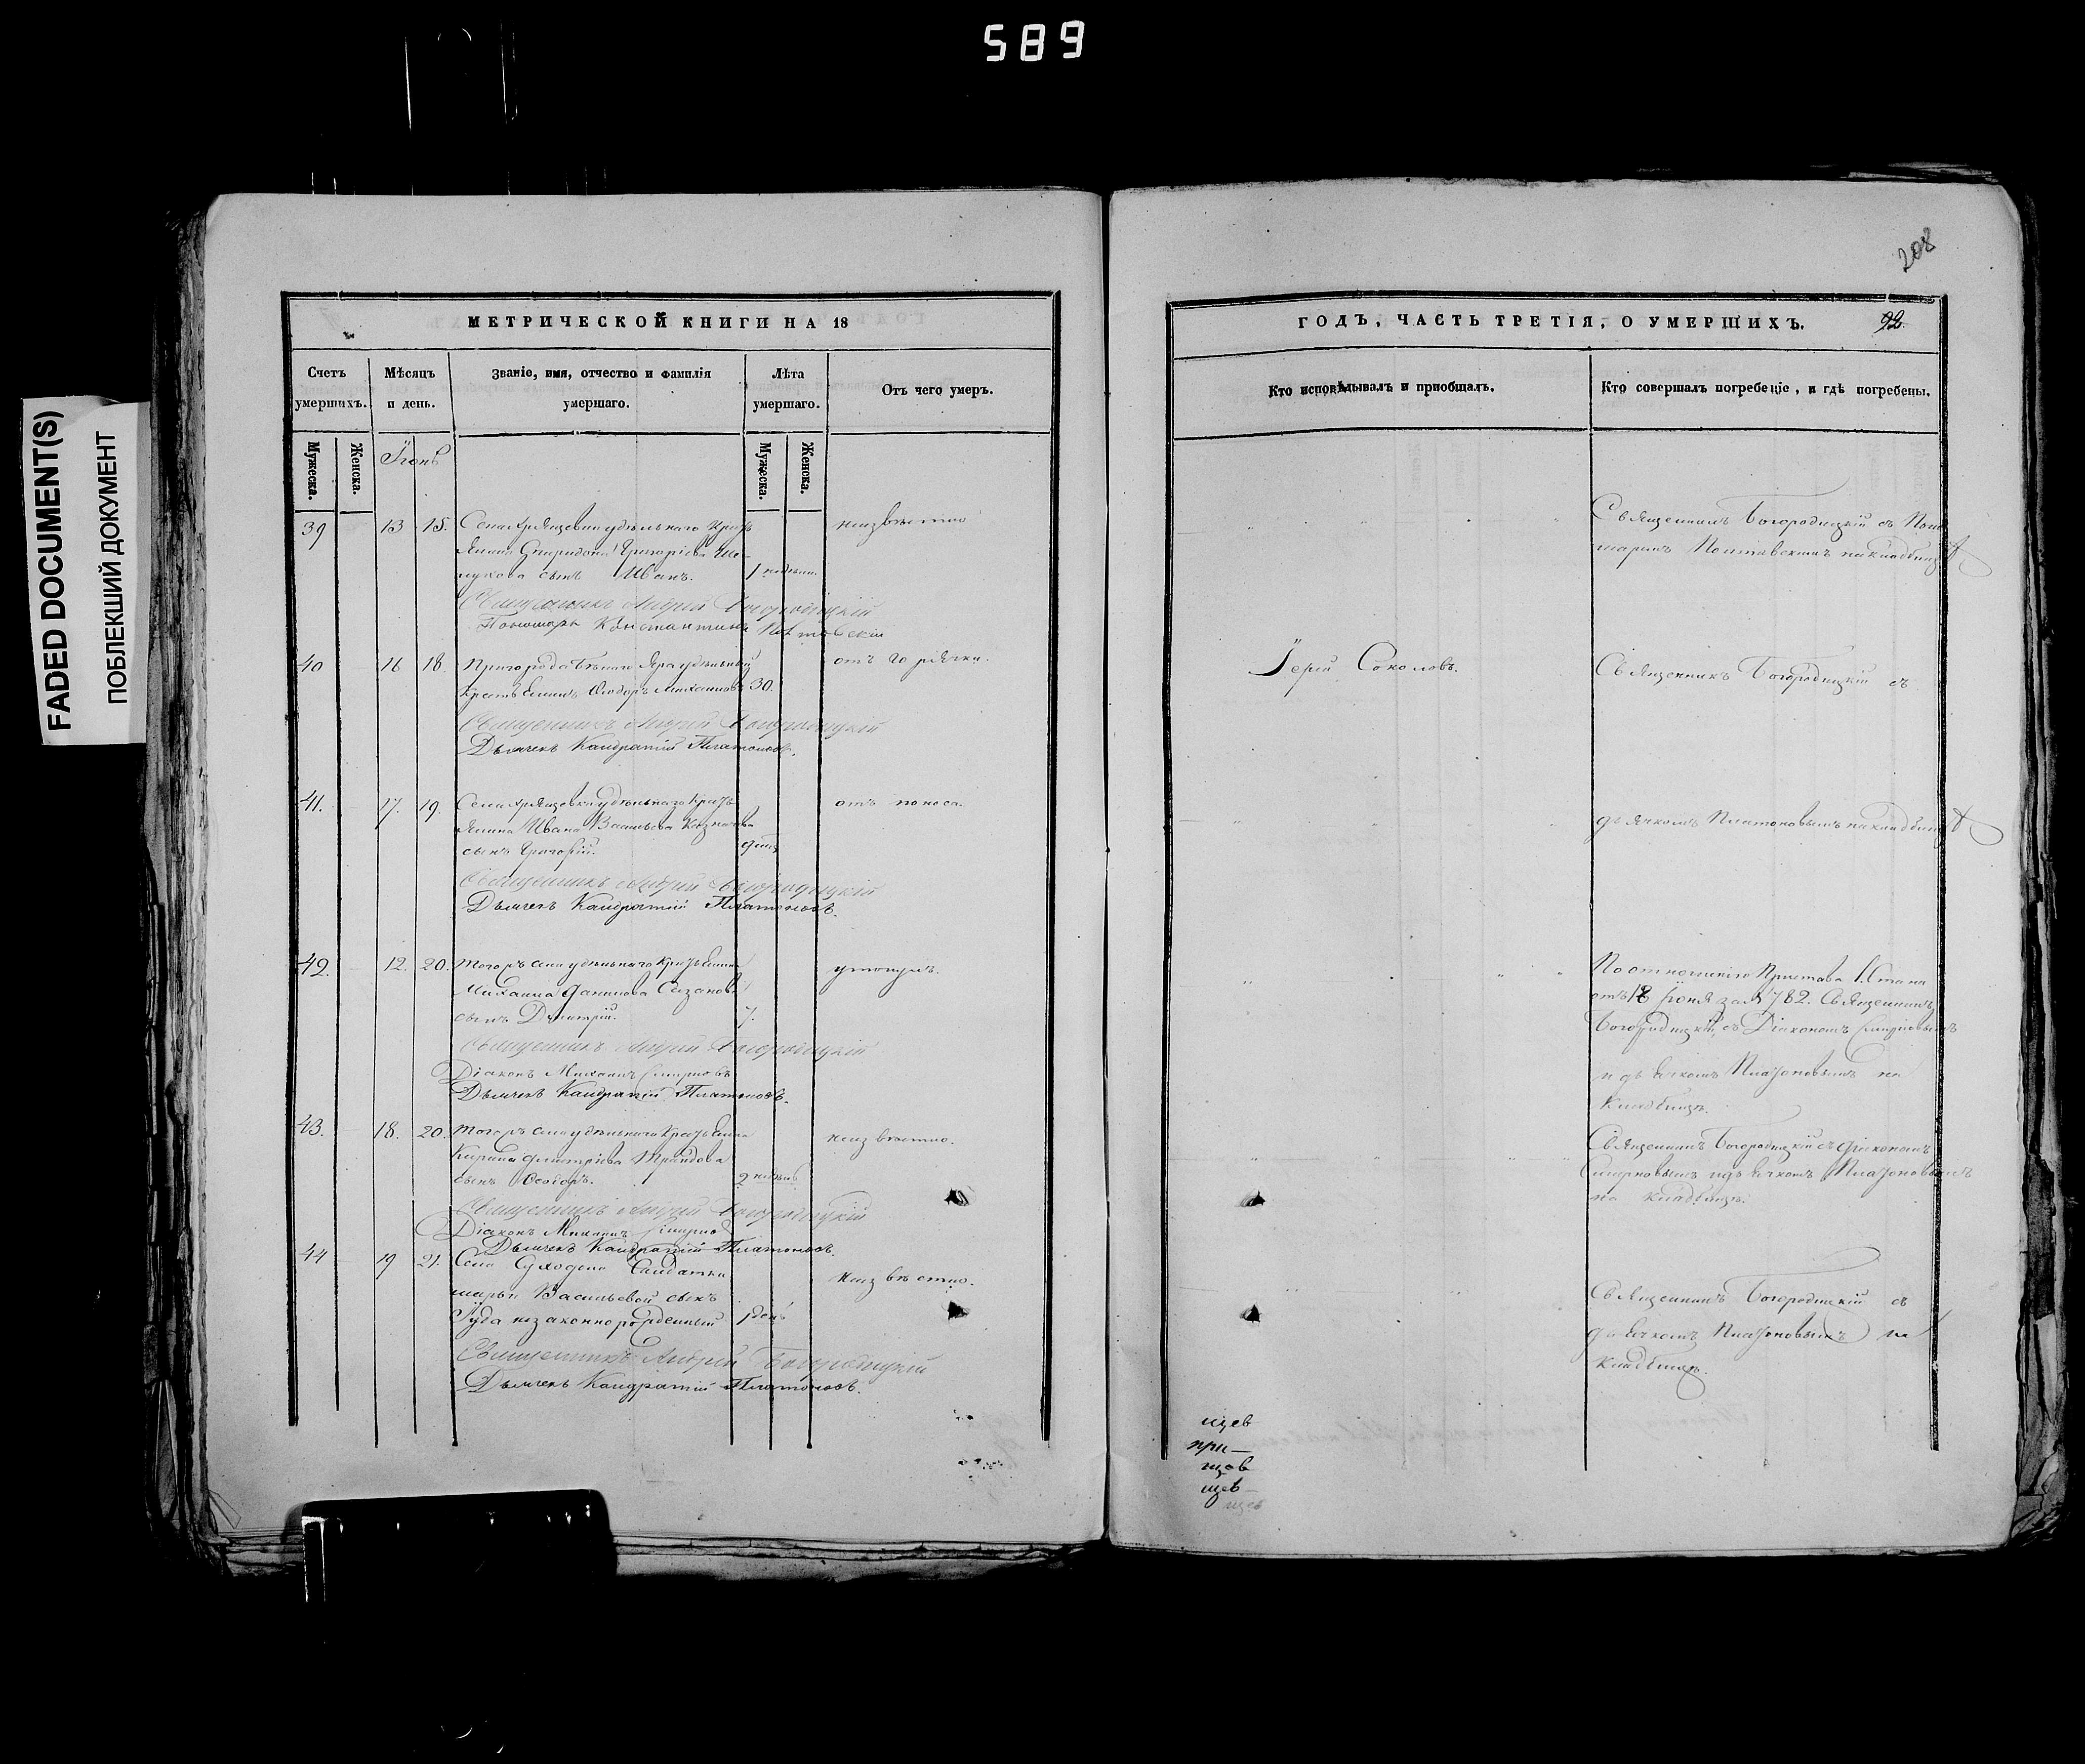 589
FADED DOCUMENT(S)
ПОБЛЕКШИЙ ДОКУМЕНТ
МЕТРИЧЕСКОЙ КНИГИ НА 18
Счетъ умершихъ.
Мѣсяцъ и день.
Званіе, имя, отчество и фамилія умершаго.
Лѣта умершаго.
Отъ чего умеръ.
Мужеска.
Женска.
Мужеска.
Женска.
39 13 15. Села удѣльнаго Кресть неизвѣстно
янина Спиридона Григорьева
сынъ Иванъ. 1 недели
Священникъ Андрей Богородицкій
Пономарь Константинъ
40 16 18. Пригорода Бѣлаго Яра удѣльный отъ горячки.
Крестьянинъ Ѳеодоръ 30.
Священникъ Андрей Богородицкій
Дьячекъ Кандратій Платоновъ.
41. 17. 19. Села удѣльнаго Кресть отъ поноса.
янина Ивана Васильева
сынъ Григорій.
Священникъ Андрей Богородицкій
Дьячекъ Кандратій Платоновъ.
42. 12. 20. Тогожъ села удѣльнаго Крестьянина утонулъ.
Михаила Данилова
сынъ Димитрій. 7.
Священникъ Андрей Богородицкій
Діаконъ Михаилъ Смирновъ
Дьячекъ Кандратій Платоновъ.
43. 18. 20. Тогожъ села удѣльнаго Крестьянина неизвѣстно.
Кирила Димитріева
сынъ Ѳеодоръ. 2 недѣль
Священникъ Андрей Богородицкій
Діаконъ Михаилъ Смирнов
Дьячекъ Кандратій Платоновъ.
44 19 21. Села Солдатки неизвѣстно.
Марьи Васильевой сынъ
Іуда незаконнорожденный 1 день
Священникъ Андрей Богородицкій
Дьячекъ Кандратій Платоновъ.
208
ГОДЪ, ЧАСТЬ ТРЕТІЯ, О УМЕРШИХЪ.
92.
Кто исповѣдывалъ и пріобщалъ.
Кто совершалъ погребеніе, и гдѣ погребены.
Священникъ Богородицкій съ Поно
маремъ на кладбищѣ
Іерей Соколовъ. Священникъ Богородицкій съ
дьячкомъ Платоновымъ на кладбищѣ
По отношенію Пристава 1. Стана
отъ 18 Іюня за № 782. Священникъ
Богородицкій, съ Діакономъ Смирновымъ
и дьячкомъ Платоновымъ на
кладбищѣ.
Священникъ Богородицкій съ Діакономъ
Смирновымъ и дьячкомъ Платоновымъ
на кладбищѣ.
Священникъ Богородицкій съ
дьячкомъ Платоновымъ на
кладбищѣ.
щев
при—
щов
щев—
щев